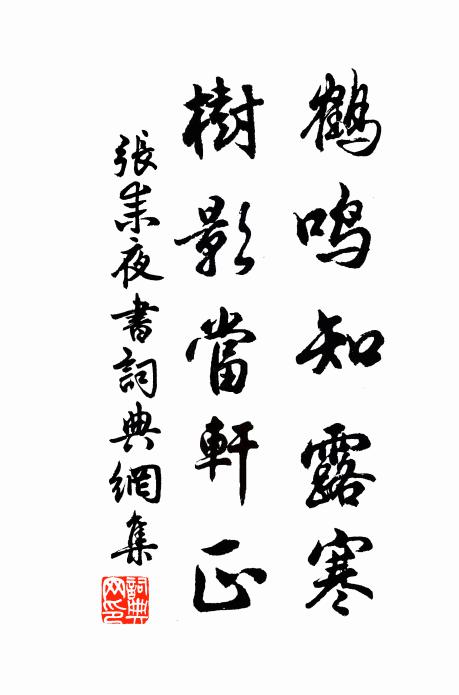 鶴鳴知露寒
樹影當軒正
張耒夜書詞典網集
詞典
网印